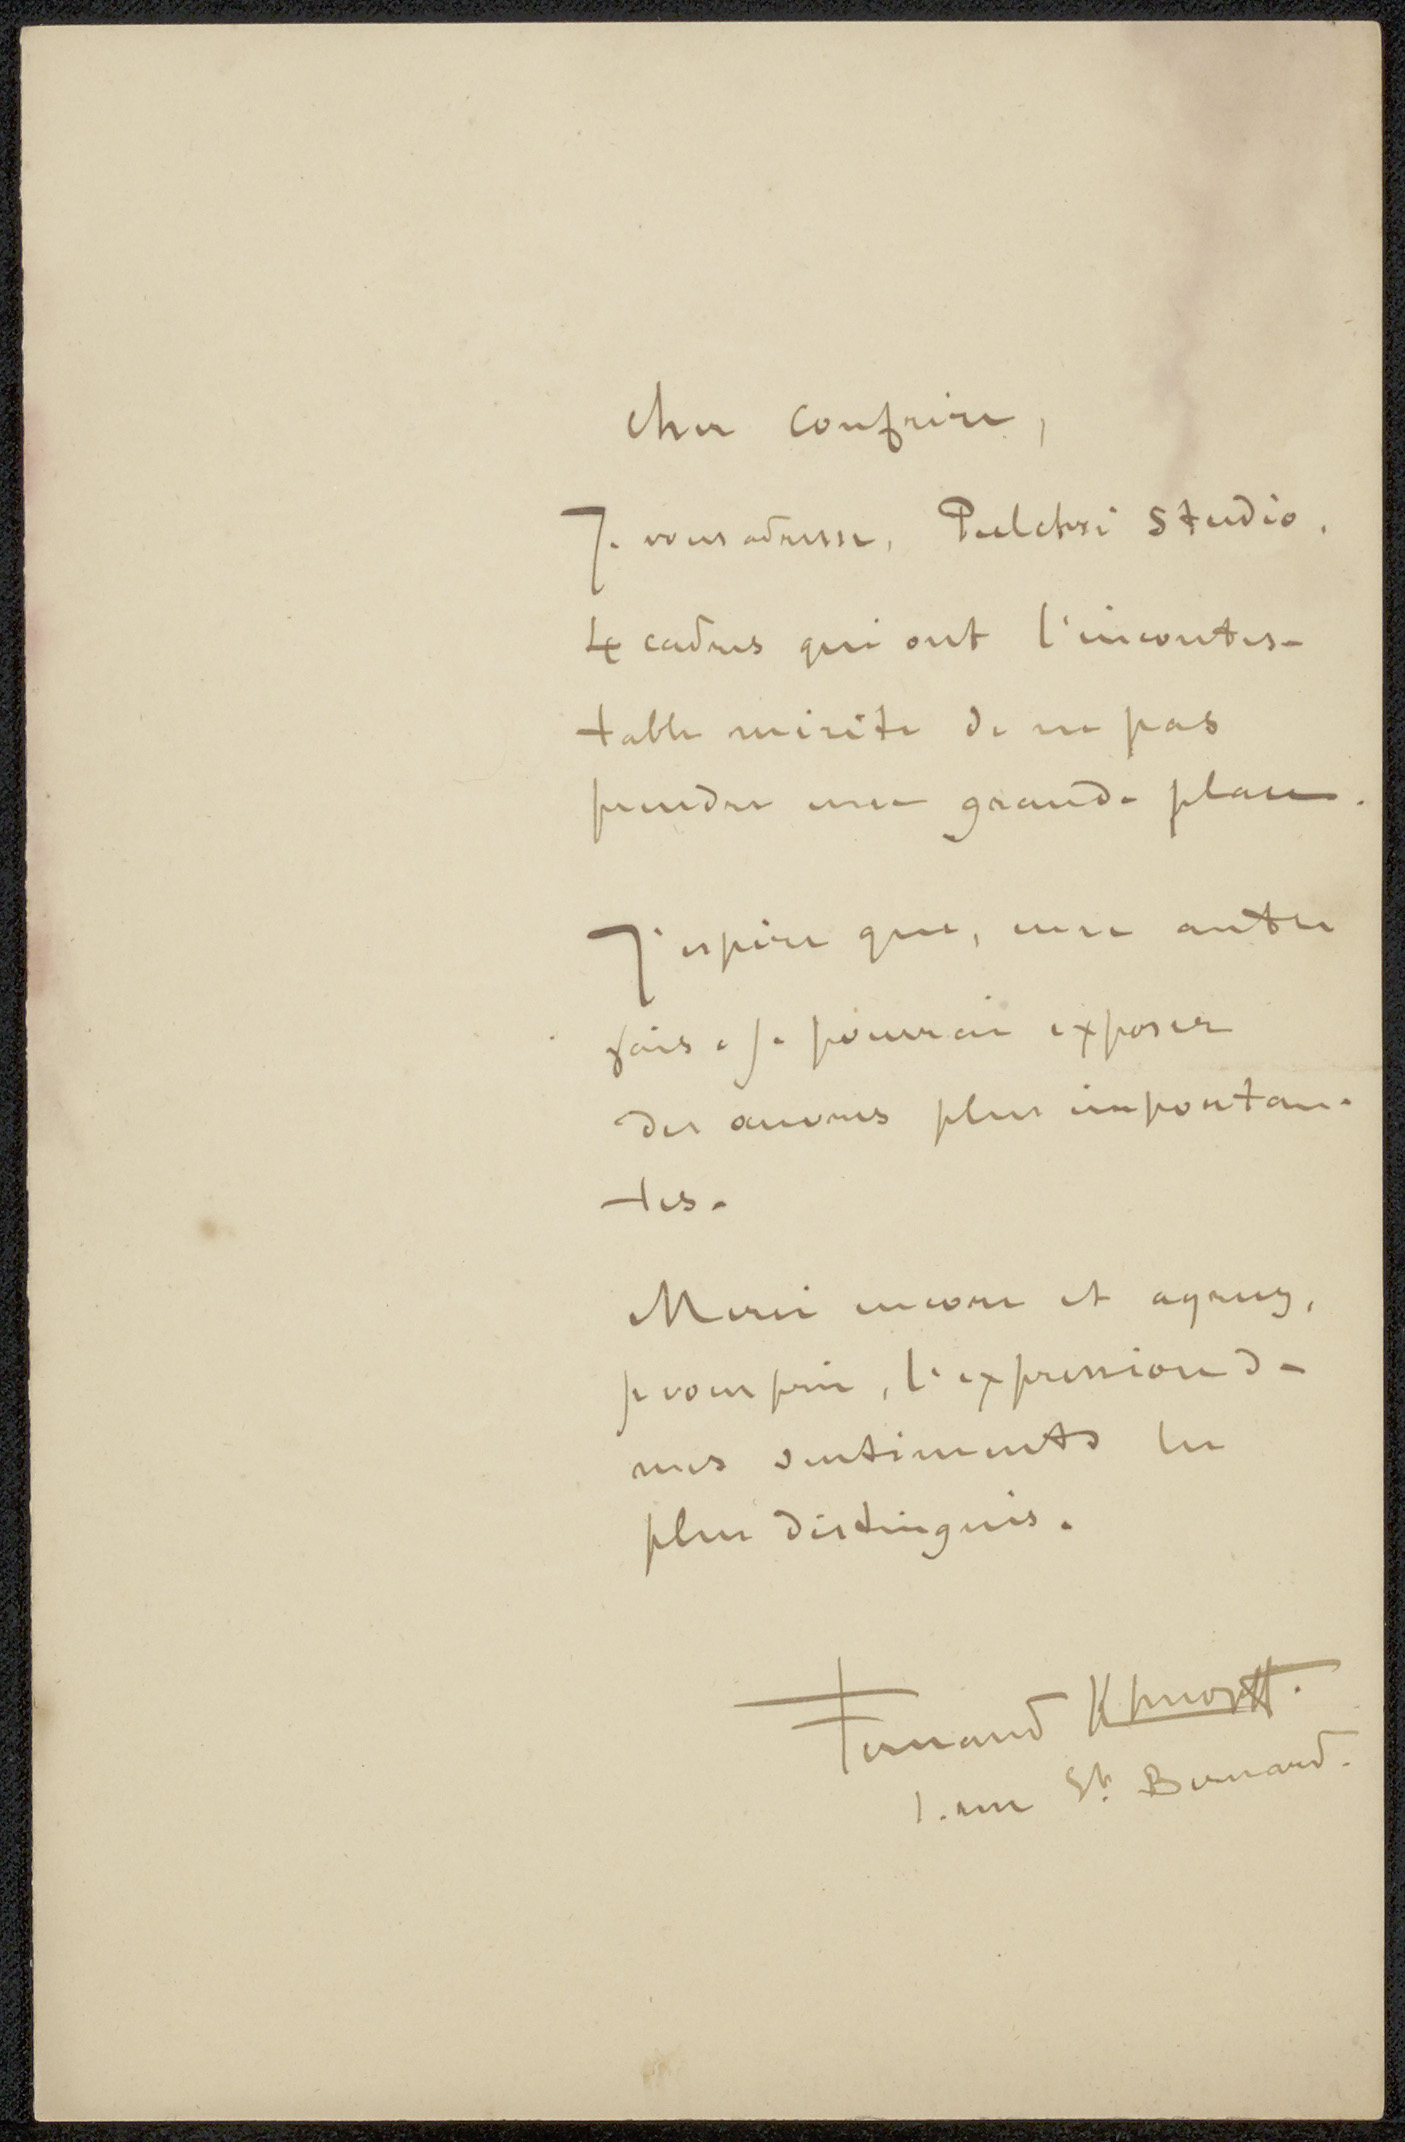 Cher confrère,
Je vous adresse, Pulchri Studio,
4 cadres qui ont l'incontes-
table mérite de ne pas
prendre une grande place.
J'espère que, une autre
fois, je pourrai exposer
des œuvres plus importan-
tes.
Merci encore et agréez,
je vous prie, l'expression de
mes sentiments les
plus distingués.
Fernand Khnopff.
1. rue St. Bernard.